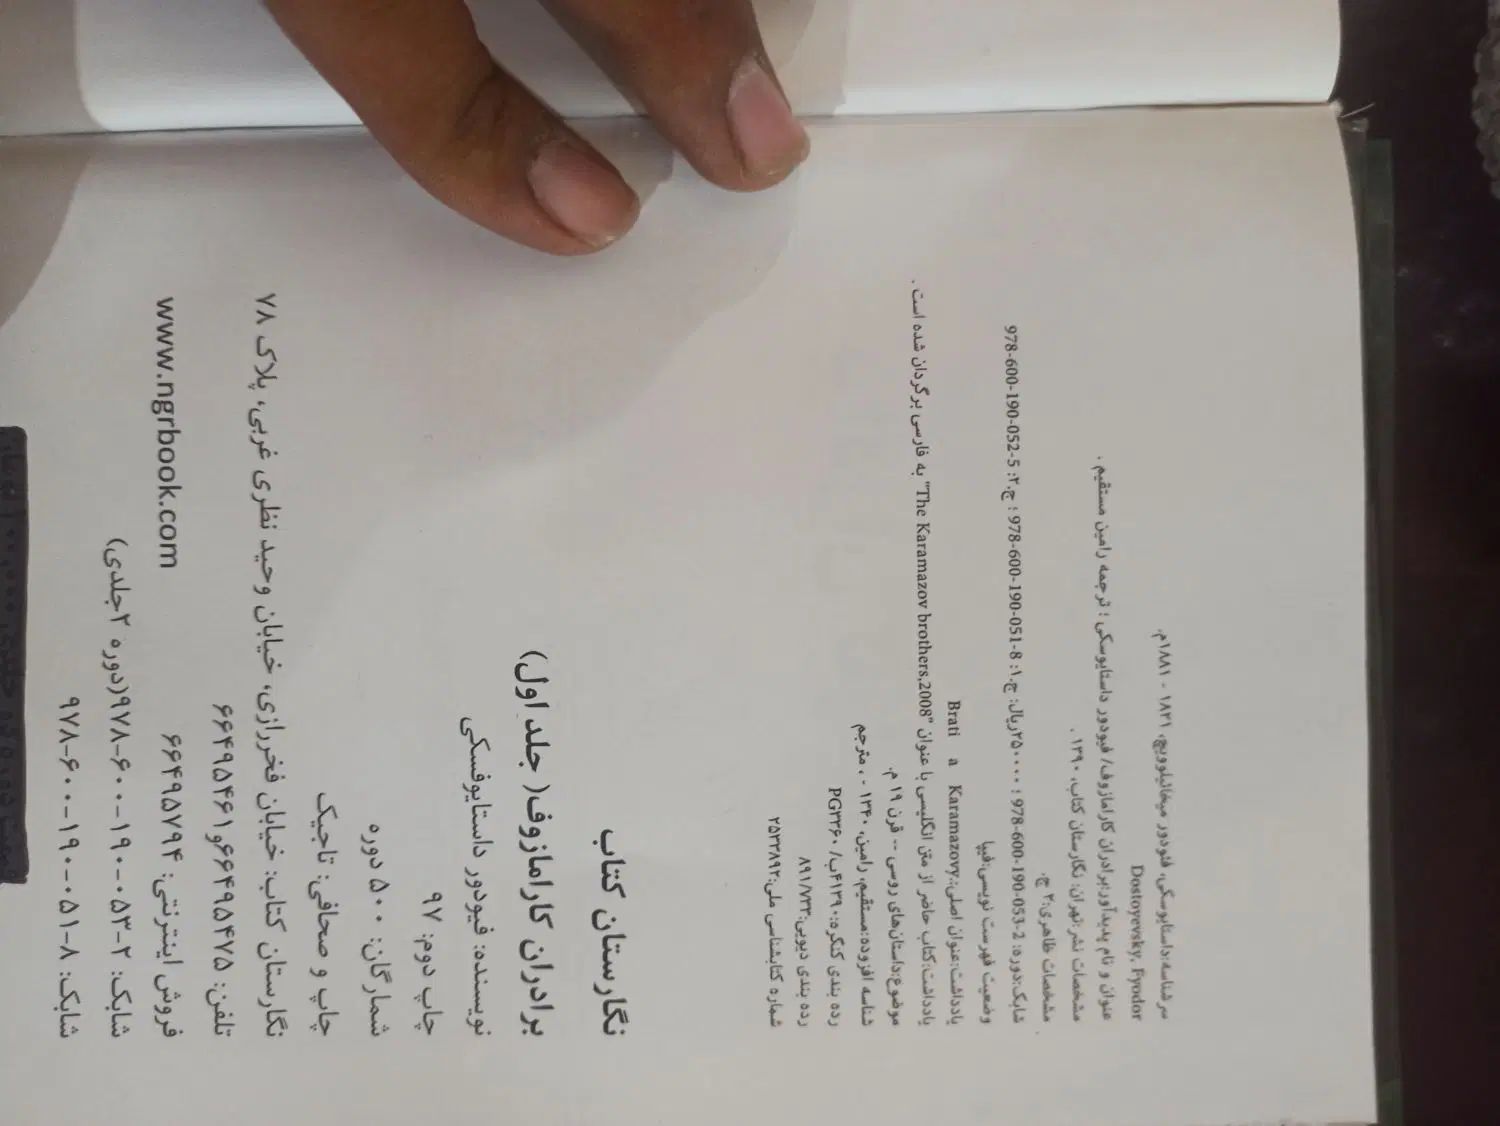 سرشناسه:داستایوسکی، فئودور میخائیلوویچ، ۱۸۲۱ - ۱۸۸۱م.
Dostoyevsky, Fyodor
عنوان و نام پدیدآور:برادران کارامازوف/ فیودور داستایوسکی ؛ ترجمه رامین مستقیم .
مشخصات نشر:تهران: نگارستان کتاب، ۱۳۹۰ .
مشخصات ظاهری:۲ ج.
شابک:دوره: 978-600-190-053-2 ؛ ۲۵۰۰۰۰ریال: ج.۱: 978-600-190-051-8 ؛ ج.۲: 978-600-190-052-5
وضعیت فهرست نویسی:فیپا
یادداشت:عنوان اصلی:.Brati a Karamazovy
یادداشت:کتاب حاضر از متن انگلیسی با عنوان "The Karamazov brothers,2008" به فارسی برگردان شده است .
موضوع:داستان‌های روسی -- قرن ۱۹ م.
شناسه افزوده:مستقیم، رامین، ۱۳۴۰ - ، مترجم
رده بندی کنگره: PG۳۳۶۰/
رده بندی دیویی:۸۹۱/۷۳۳
شماره کتابشناسی ملی:۲۵۳۳۸۹۲
نگارستان کتاب
برادران کارامازوف( جلد اول)
نویسنده: فیودور داستایوفسکی
چاپ دوم: ۹۷
شمارگان: ۵۰۰ دوره
چاپ و صحافی: تاجیک
نگارستان کتاب: خیابان فخررازی، خیابان وحید نظری غربی، پلاک ۷۸
تلفن: ۶۶۴۹۵۴۷۵و۶۶۴۹۵۴۶۱
فروش اینترنتی: ۶۶۴۹۵۷۹۴ www.ngrbook.com
شابک: ۲-۰۵۳-۱۹۰-۶۰۰-۹۷۸(دوره ۲جلدی)
شابک: ۸-۰۵۱-۱۹۰-۶۰۰-۹۷۸